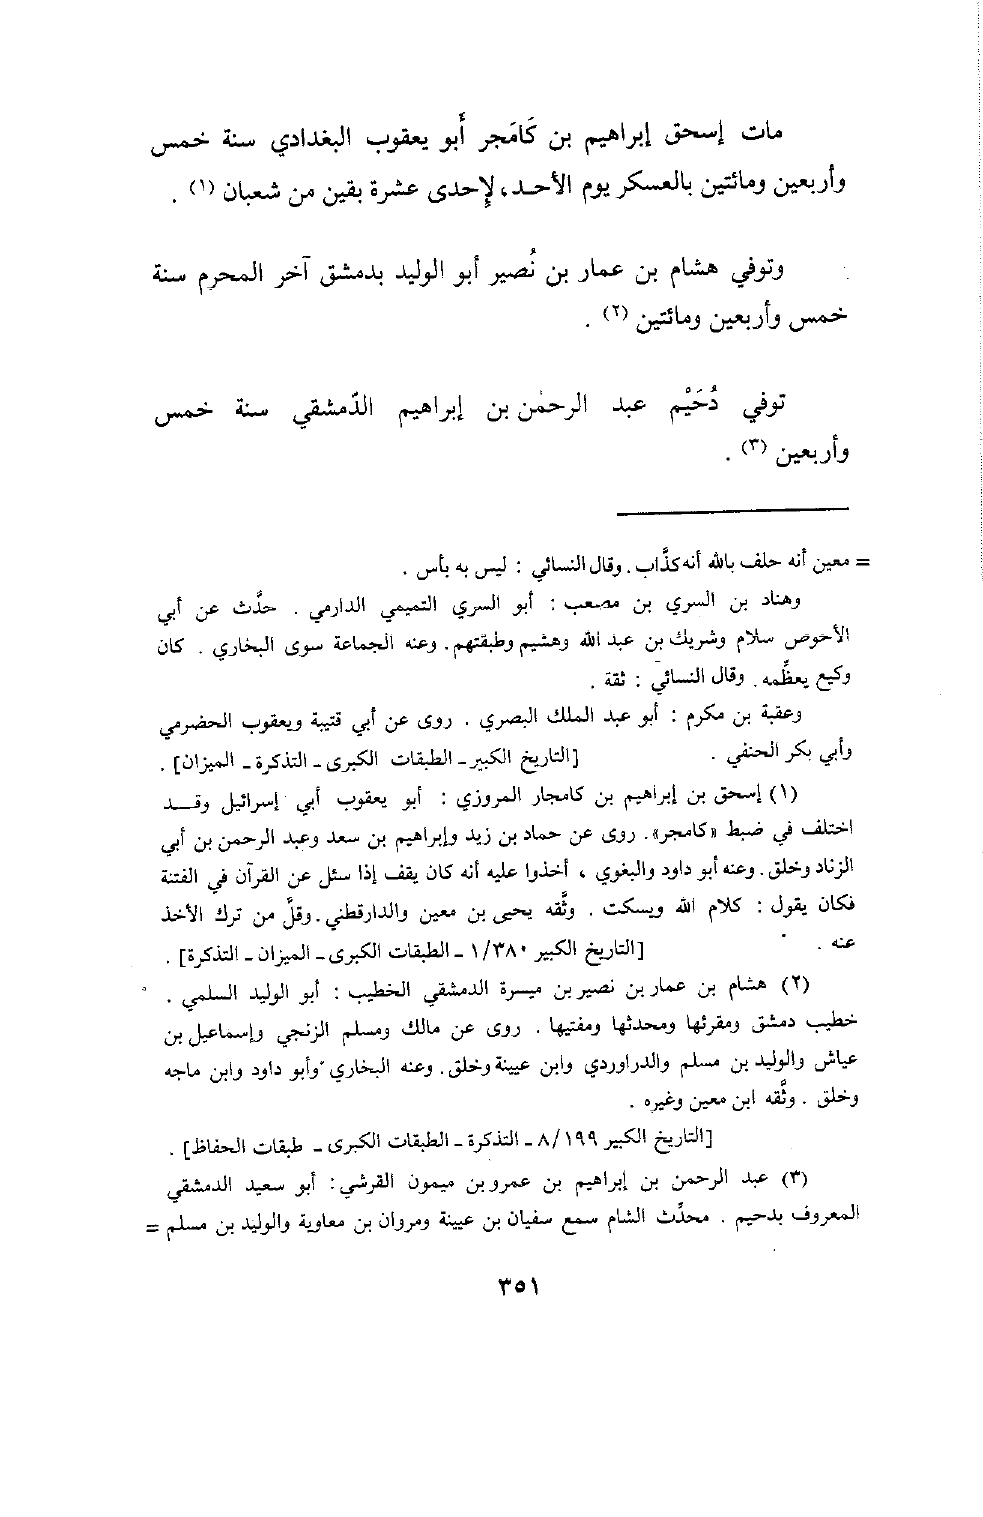 مات إسحق إبراهيم بن كَامَجر أَبو يعقوب البغدادي سنة خمس
وأربعين ومائتين بالعسكر يوم الأحد، لإحدى عشرة بقين من شعبان (١) .
وتوفي هشام بن عمار بن نُصير أبو الوليد بدمشق آخر المحرم سنة
خمس وأربعين ومائتين (٢) .
توفي دُحَيْم عبد الرحمٰن بن إبراهيم الدّمشقي سنة خمس
وأربعين (٣) .
= معين أنه حلف بالله أنه كذَّاب . وقال النسائي : ليس به بأس .
وهناد بن السري بن مصعب : أبو السري التميمي الدارمي . حدَّث عن أبي
الأحوص سلام وشريك بن عبد الله وهشيم وطبقتهم . وعنه الجماعة سوى البخاري . كان
وكيع يعظِّمه . وقال النسائي : ثقة .
وعقبة بن مكرم : أبو عبد الملك البصري . روى عن أبي قتيبة ويعقوب الحضرمي
وأبي بكر الحنفي . [التاريخ الكبير - الطبقات الكبرى - التذكرة - الميزان] .
(١) إسحق بن إبراهيم بن كامجار المروزي : أبو يعقوب أبي إسرائيل وقد
اختلف في ضبط «كامجر» . روى عن حماد بن زيد وإبراهيم بن سعد وعبد الرحمن بن أبي
الزناد وخلق . وعنه أبو داود والبغوي ، أخذوا عليه أنه كان يقف إذا سئل عن القرآن في الفتنة
فكان يقول : كلام الله ويسكت . وثَّقه يحيى بن معين والدارقطني . وقلَّ من ترك الأخذ
عنه . [التاريخ الكبير ١/٣٨٠ - الطبقات الكبرى - الميزان - التذكرة] .
(٢) هشام بن عمار بن نصير بن ميسرة الدمشقي الخطيب : أبو الوليد السلمي .
خطيب دمشق ومقرئها ومحدثها ومفتيها . روى عن مالك ومسلم الزنجي وإسماعيل بن
عياش والوليد بن مسلم والدراوردي وابن عيينة وخلق . وعنه البخاري وأبو داود وابن ماجه
وخلق . وثَّقه ابن معين وغيره .
[التاريخ الكبير ٨/١٩٩ - التذكرة - الطبقات الكبرى - طبقات الحفاظ] .
(٣) عبد الرحمن بن إبراهيم بن عمرو بن ميمون القرشي : أبو سعيد الدمشقي
المعروف بدحيم . محدِّث الشام سمع سفيان بن عيينة ومروان بن معاوية والوليد بن مسلم =
٣٥١